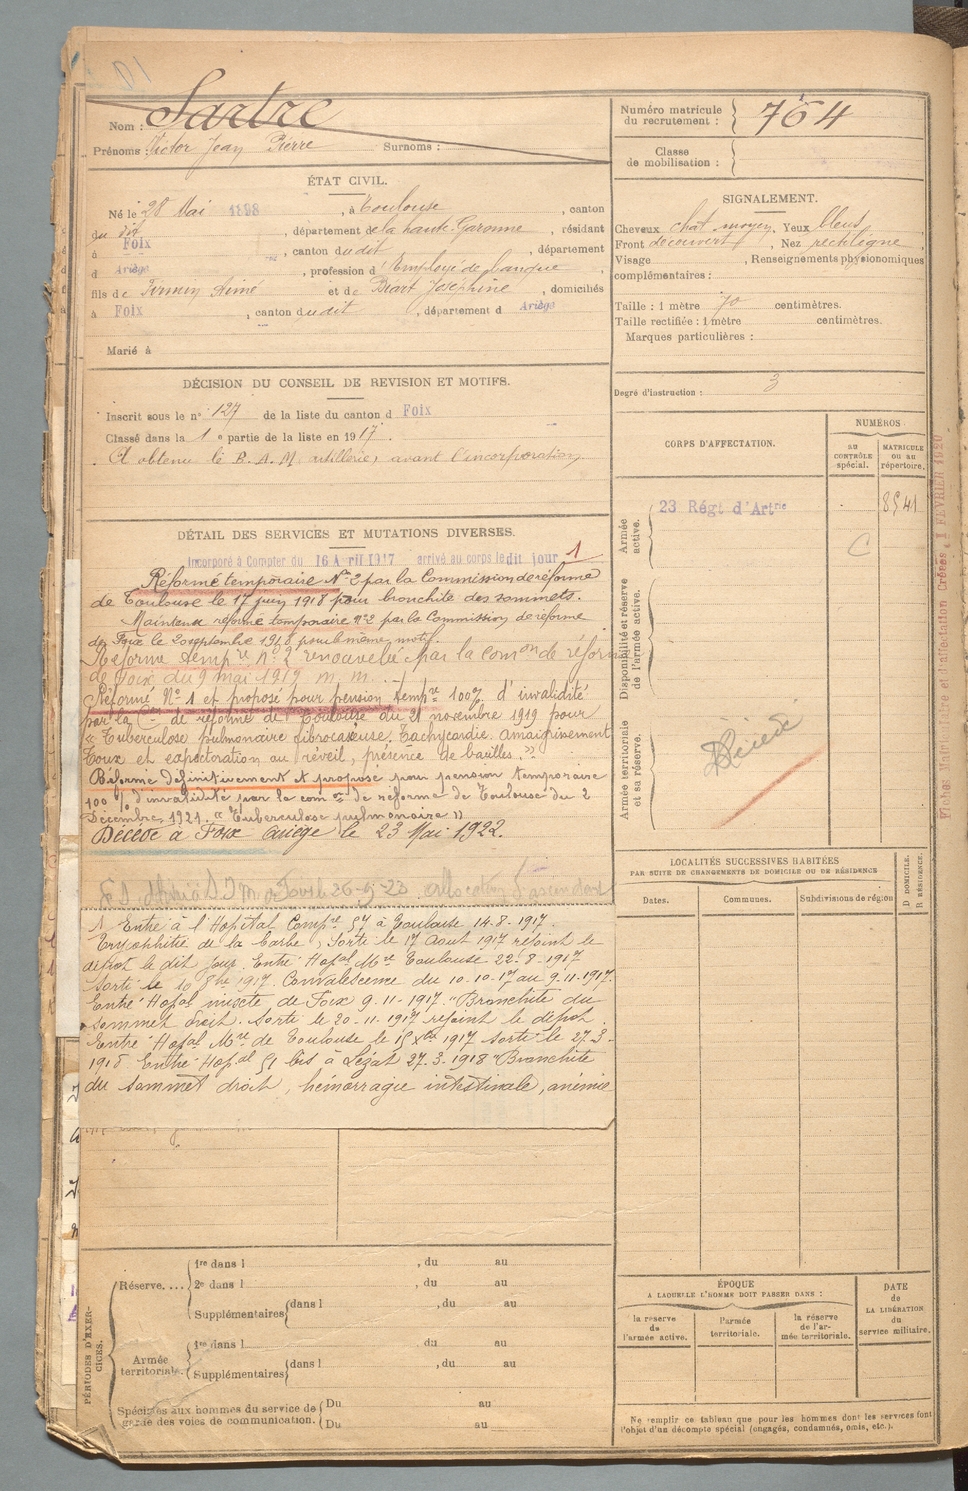 Nom : Sartre
Prénoms : Victor Jean Pierre Surnoms :
Numéro matricule du recrutement : 764
Classe de mobilisation :
ÉTAT CIVIL.
Né le 28 Mai 1898, à Toulouse, canton
du dit, département de la haute-Garonne, résidant
à Foix, canton du dit, département
d Ariège, profession d'Employé de banque,
fils de Firmin Aimé et de Joséphine, domiciliés
à Foix, canton du dit, département d Ariège
Marié à
DÉCISION DU CONSEIL DE REVISION ET MOTIFS.
Inscrit sous le n° 127 de la liste du canton d Foix
Classé dans la 1 e partie de la liste en 1917.
A obtenu le B. A. M. artillerie, avant l'incorporation
DÉTAIL DES SERVICES ET MUTATIONS DIVERSES.
Incorporé à Compter du 16 Avril 1917 arrivé au corps le dit jour 1
Réformé temporaire N° 2 par la Commission de réforme
de Toulouse le 17 juin 1918 pour bronchite des sommets.
Maintenu réformé temporaire n°2 par la Commission de réforme
de Foix le 20 septembre 1918 pour le même motif
Réforme temp re N° 2 renouvelée par la com on de réforme
de Foix du 9 mai 1919 m. m.
Réformé N° 1 et proposé pour pension temp re 100% d'invalidité
par la Con de réforme de Toulouse du 21 novembre 1919 pour
« Tuberculose pulmonaire fibrocaséuse. Tachycardie. amaigrissement
Toux et expectoration au réveil, présence de bacilles. »
Réformé définitivement et proposé pour pension temporaire
100 % d'invalidité par la com on de réforme de Toulouse du 2
Décembre 1921. « Tuberculose pulmonaire »
Décédé à Foix Ariège le 23 Mai 1922.
allocation d'ascendant
1 Entré à l'Hopital Comp re 57 à Toulouse 14-8-1917.
de la barbe, Sorti le 17 Aout 1917 rejoint le
dépot le dit jour. Entré Hopal Mre Toulouse 22-8-1917
Sorti le 10 8bre 1917. Convalescence du 10-10-17 au 9-11-1917.
Entré Hopal mixte de Foix 9-11-1917. "Bronchite du
sommet droit. Sorti le 20-11-1917 rejoint le dépot.
Entré Hopal Mre de Toulouse le 15 Xbre 1917 sorti le 27-3-
1918 Entré Hopal 51 bis à Lézat 27-3-1918 "Bronchite
du sommet droit, hémorragie intestinale, anémie
PÉRIODES D'EXERCICES.
Réserve....
1re dans l , du au
2e dans l , du au
Supplémentaires dans l , du au
Armée territoriale.
1re dans l , du au
Supplémentaires dans l , du au
Spéciales aux hommes du service de garde des voies de communication.
Du au
Du au
SIGNALEMENT.
Cheveux chat. moyen, Yeux bleus
Front découvert, Nez rectiligne
Visage , Renseignements physionomiques
complémentaires :
Taille : 1 mètre 70 centimètres.
Taille rectifiée : 1 mètre centimètres.
Marques particulières :
Degré d'instruction : 3
CORPS D'AFFECTATION.
NUMÉROS
AU CONTRÔLE spécial.
MATRICULE OU AU répertoire.
Armée active.
23 Régt d'Artrie
8541
C
Disponibilité et réserve de l'armée active.
Armée territoriale et sa réserve.
Décédé
LOCALITÉS SUCCESSIVES HABITÉES
PAR SUITE DE CHANGEMENTS DE DOMICILE OU DE RÉSIDENCE
D DOMICILE.
R RÉSIDENCE.
Dates.
Communes.
Subdivisions de région
ÉPOQUE
A LAQUELLE L'HOMME DOIT PASSER DANS :
la réserve de l'armée active.
l'armée territoriale.
la réserve de l'armée territoriale.
DATE de LA LIBÉRATION du service militaire.
Ne remplir ce tableau que pour les hommes dont les services font
l'objet d'un décompte spécial (engagés, condamnés, omis, etc.).
Fiches Matriculaire et d'affectation Créées 1 FEVRIER 1920